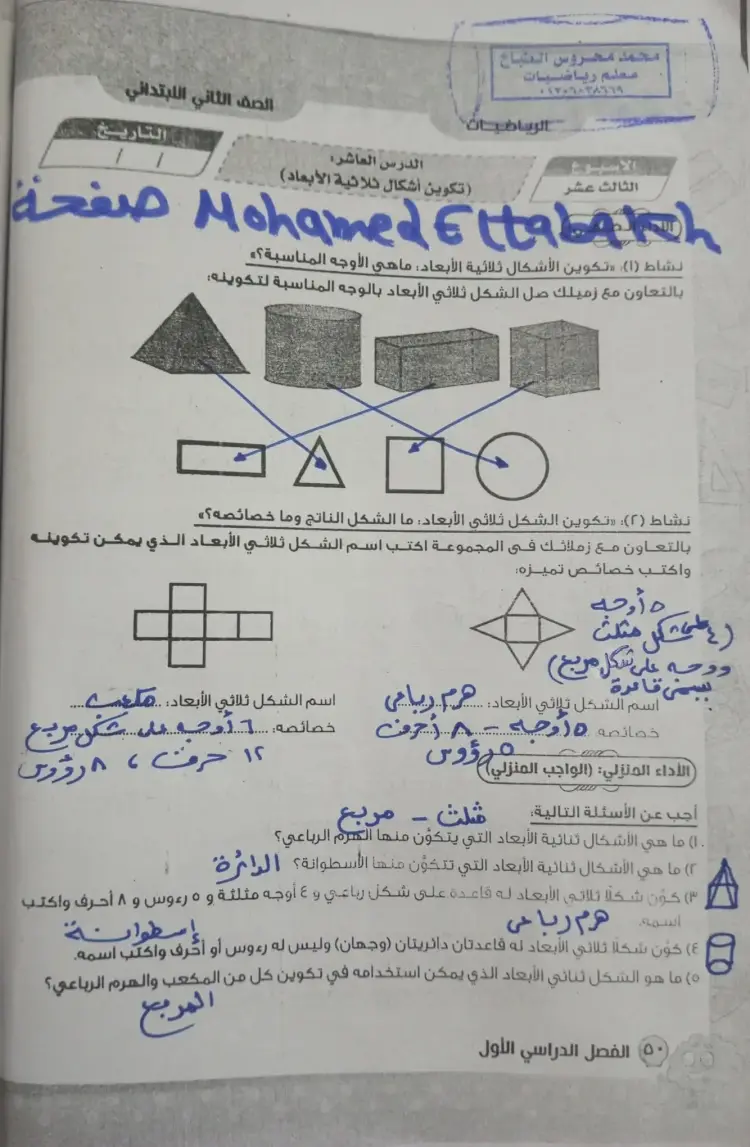 محمد محروس الطباخ
معلم رياضيات
الرياضيات
الصف الثاني الابتدائي
الأسبوع
الثالث عشر
الدرس العاشر:
(تكوين أشكال ثلاثية الأبعاد)
التاريخ
/ /
صفحة Mohamed Eltabakh
نشاط (١): «تكوين الأشكال ثلاثية الأبعاد: ماهي الأوجه المناسبة؟»
بالتعاون مع زميلك صل الشكل ثلاثي الأبعاد بالوجه المناسبة لتكوينه:
نشاط (٢): «تكوين الشكل ثلاثي الأبعاد: ما الشكل الناتج وما خصائصه؟»
بالتعاون مع زملائك في المجموعة اكتب اسم الشكل ثلاثي الأبعاد الذي يمكن تكوينه
واكتب خصائص تميزه:
٥ أوجه
(٤ على شكل مثلث
ووجه على شكل مربع)
يسمى قاعدة
اسم الشكل ثلاثي الأبعاد: هرم رباعى
خصائصه ٥ أوجه - ٨ أحرف
٥ رؤوس
اسم الشكل ثلاثي الأبعاد: مكعب
خصائصه: ٦ أوجه على شكل مربع
١٢ حرف ، ٨ رؤوس
الأداء المنزلي: (الواجب المنزلي)
أجب عن الأسئلة التالية:
مثلث - مربع
١) ما هي الأشكال ثنائية الأبعاد التي يتكوَّن منها الهرم الرباعي؟
٢) ما هي الأشكال ثنائية الأبعاد التي تتكوَّن منها الأسطوانة؟ الدائرة
٣) كوّن شكلًا ثلاثي الأبعاد له قاعدة على شكل رباعي و ٤ أوجه مثلثة و ٥ رءوس و ٨ أحرف واكتب
اسمه. هرم رباعى
إسطوانة
٤) كوّن شكلًا ثلاثي الأبعاد له قاعدتان دائريتان (وجهان) وليس له رءوس أو أحرف واكتب اسمه.
٥) ما هو الشكل ثنائي الأبعاد الذي يمكن استخدامه في تكوين كل من المكعب والهرم الرباعي؟
المربع
٥٠ الفصل الدراسي الأول